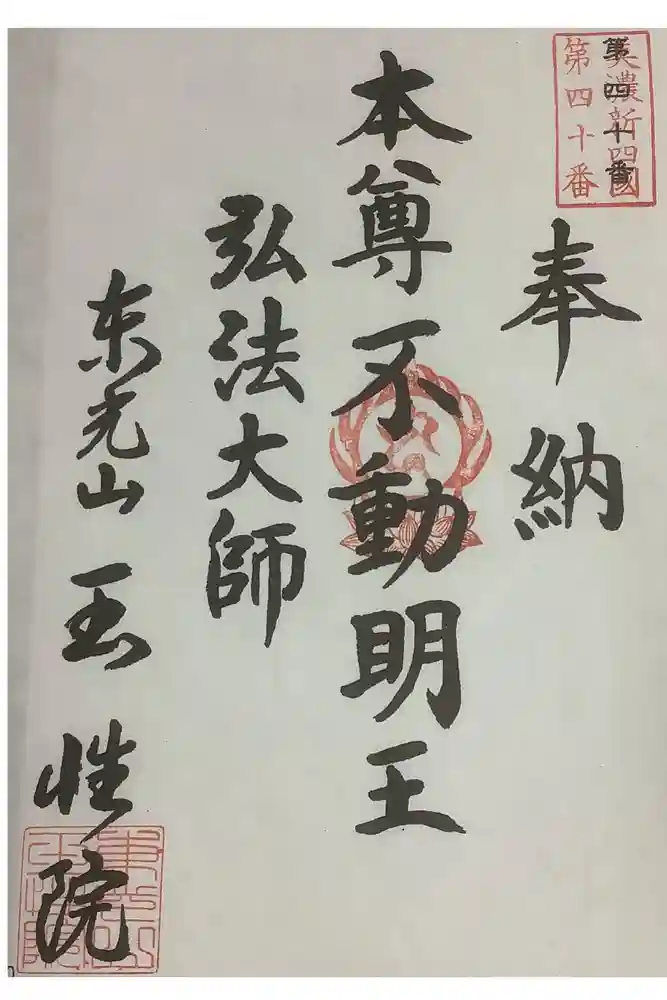 美濃新四國
第四十番
第四十番
奉納
本尊不動明王
弘法大師
东光山 玉性院